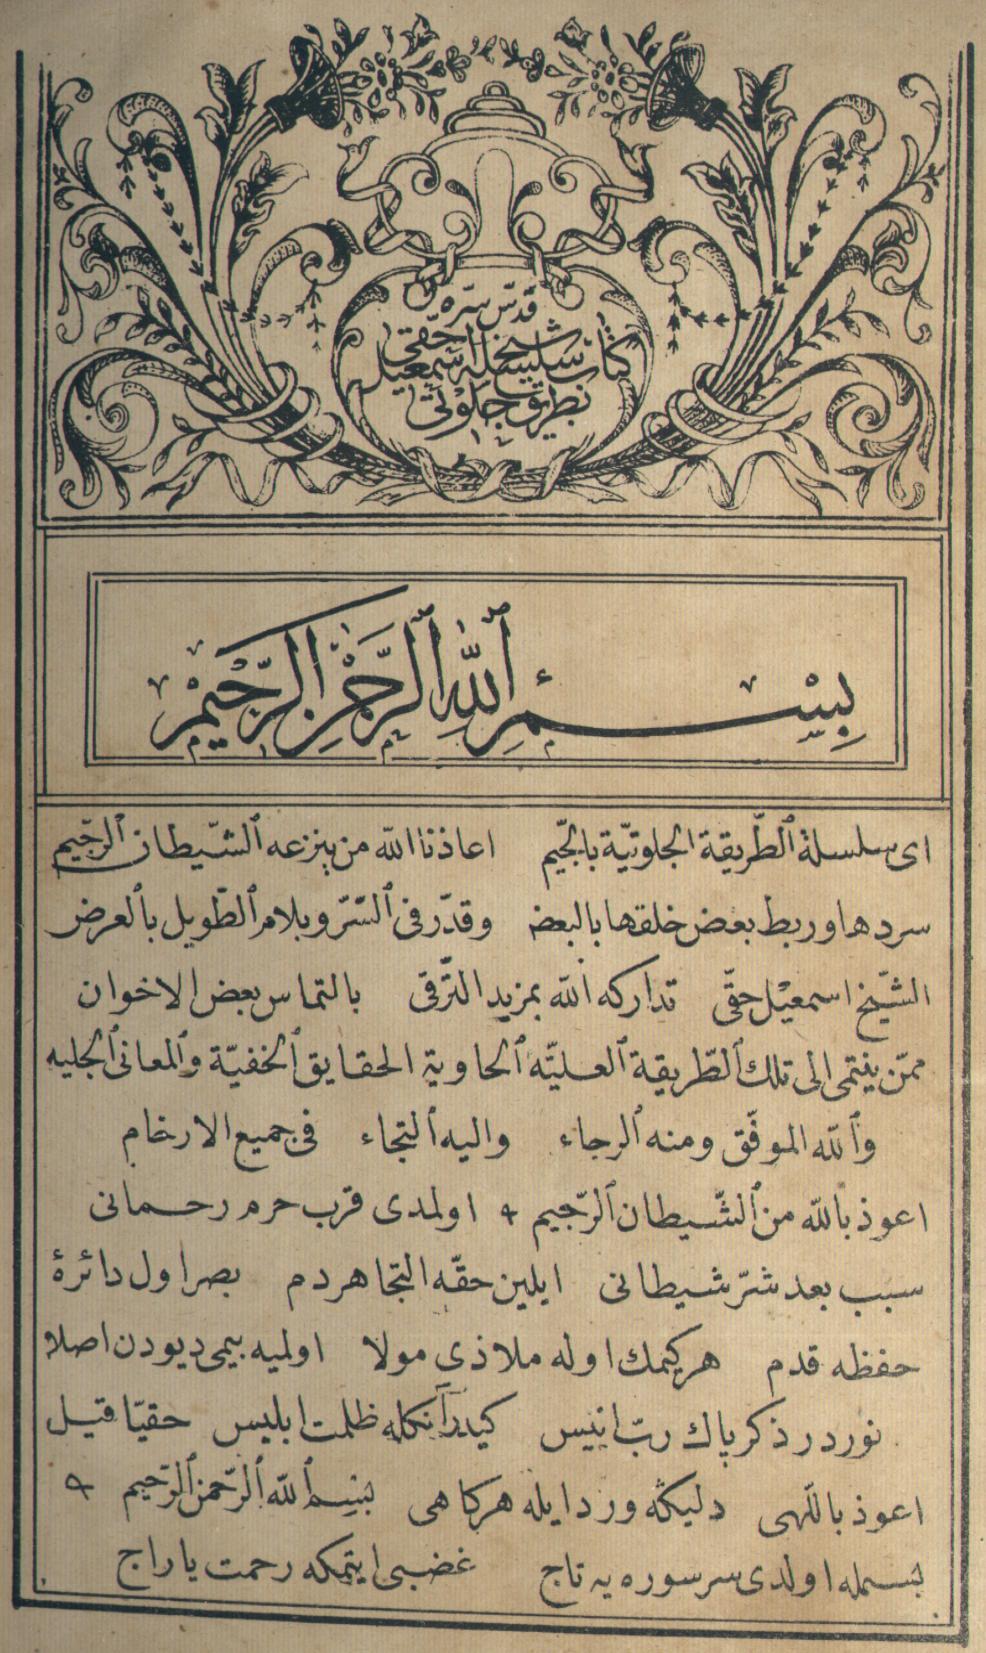 قدّس سرّه
كتاب سلسله شيخ اسمعيل حقّى
بطريق جلوتى
بِسْمِ ٱللّٰهِ ٱلرَّحْمٰنِ ٱلرَّحِيْمِ
اى سلسلة ٱلطّريقة الجلوتيّة بالجّيم اعاذنا الله من ينزعه ٱلشّيطان ٱلرّجيم
سردها وربط بعض خلقها بالبعض وقدّر فى ٱلسّرّ وبلام ٱلطّويل بٱلعرض
الشّيخ اسمعيل حقّى تداركه الله بمزيد التّرقى بالتماس بعض الاخوان
ممّن ينتمى الى تلك ٱلطّريقة ٱلعليّه ٱلحاوية الحقايق ٱلخفيّة وٱلمعانى ٱلجليه
وٱلله الموفّق ومنه ٱلرجاء واليه ٱلتجاء فى جميع الارخام
اعوذ بالله من ٱلشّيطان ٱلرّجيم ٩ اولمدى قرب حرم رحمانى
سبب بعد شرّ شيطانى ايلين حقّه التجا هردم بصر اول دائرهٔ
حفظه قدم هر كيمك اوله ملاذي مولا اولميه بيمى ديودن اصلا
نوردر ذكر پاك ربّ انيس كيدر آنكله ظلمت ابليس حقيّا قيل
اعوذ باللّهى دليكه ورد ايله هركاهى بسم ٱلله ٱلرّحمن ٱلرّحيم ٩
بسمله اولدى سر سوره يه تاج غضبى ايتمكه رحمت ياراج